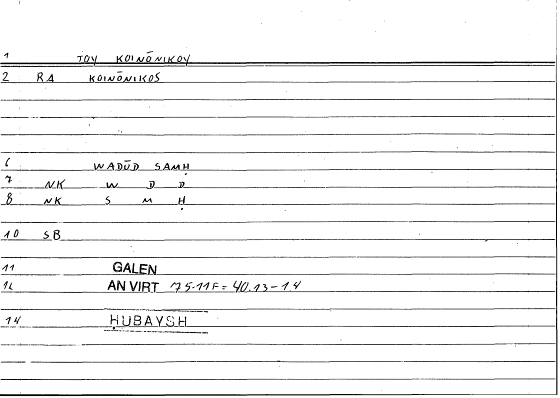 1 TOY KOINŌNIKOY
2 RA KOINŌNIKOS
6 WADŪD SAMḤ
7 NK W D D
8 NK S M Ḥ
10 SB
11 GALEN
12 AN VIRT 75.11F = 40.13-14
14 ḤUBAYSH